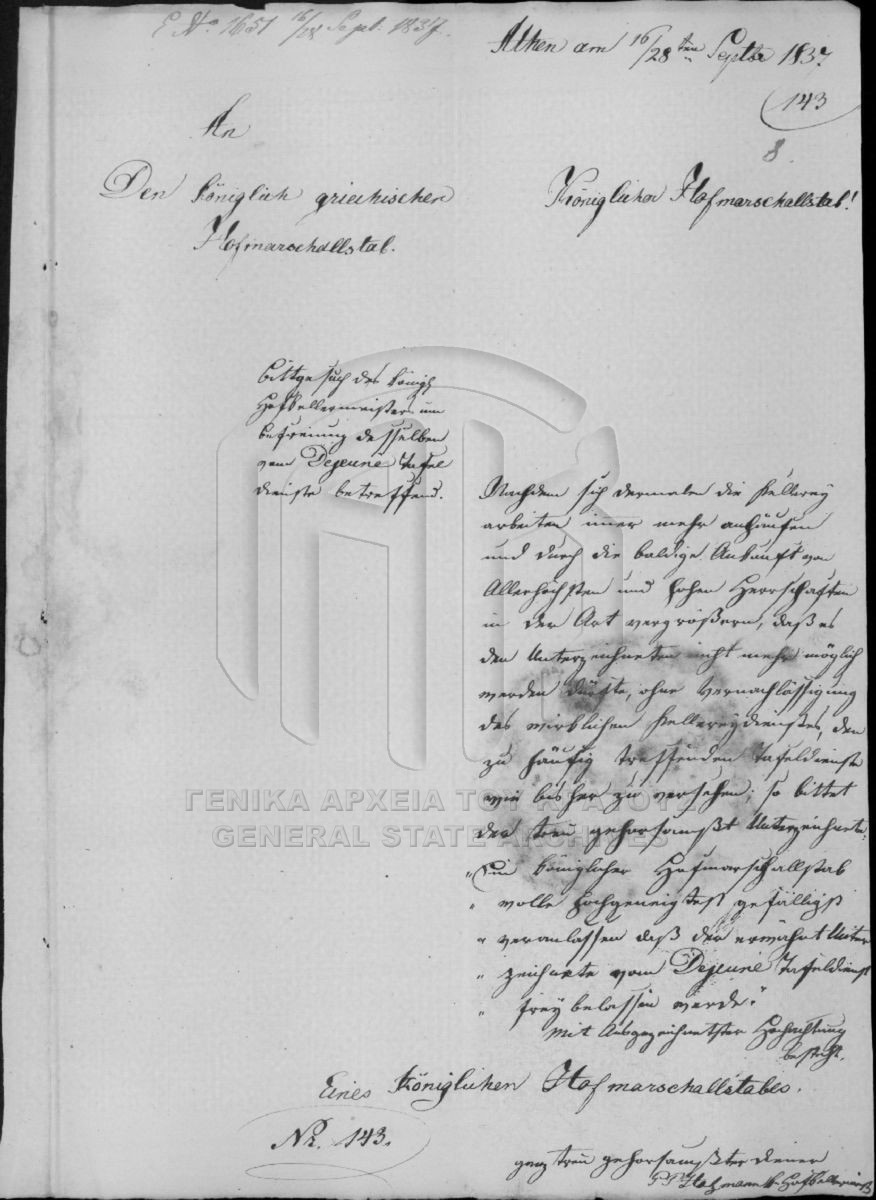 E No 1651 16/28 Sept. 1837.
Athen am 16/28ten Septbr 1837
143
8.
An
Den königlich griechischen
Hofmarschallstab.
Königlicher Hofmarschallstab!
Bittgesuch des königl
Hofkellermeisters um
Befreiung desselben
vom Dejeuné Tafel
dienste betreffend.
Nachdem sich dermalen die Kellerey
arbeiten imer mehr anhäufen
und durch die baldige Ankunft von
Allerhöchsten und hohen Herrschaften
in der Art vergrößern, daß es
den Unterzeichneten nicht mehr möglich
werden dürfte, ohne Vernachlässigung
des wirklichen Kellereydienstes, den
zu häufig treffenden Tafeldienste
wie bisher zu versehen; so bittet
der treu gehorsamst Unterzeichnete,
„Ein königlicher Hofmarschallstab
„ wolle hochgeneigtest gefälligst
„ veranlassen daß der erwähnt Unter
„ zeichnete vom Dejeuné Tafeldienst
„ frey belassen werde.“
Mit Ausgezeichnetster Hochachtung
besteht.
Eines Königlichen Hofmarschallstabes.
Nr. 143.
ganz treu gehorsamster Diener
Hofmann k. Hofkellermeister
ΓΕΝΙΚΑ ΑΡΧΕΙΑ ΤΟΥ ΚΡΑΤΟΥΣ
GENERAL STATE ARCHIVES